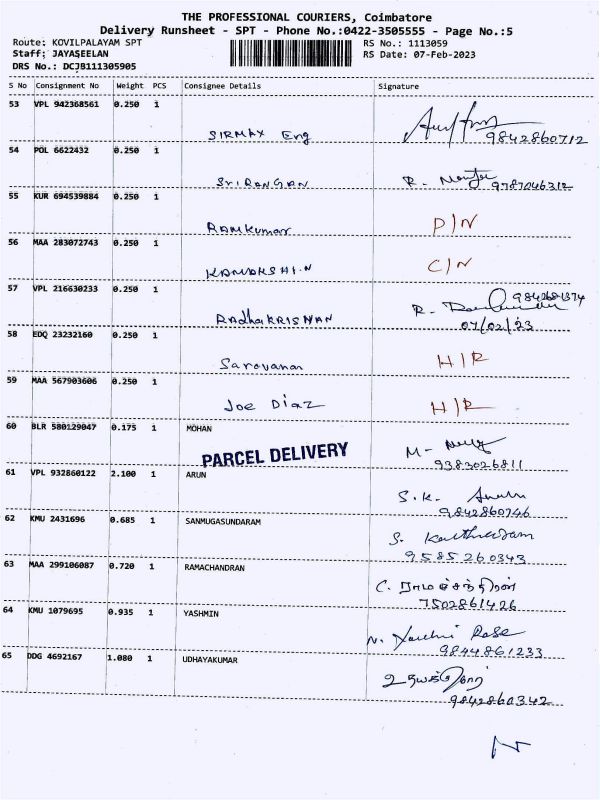 THE PROFESSIONAL COURIERS, Coimbatore
Delivery Runsheet - SPT - Phone No.:0422-3505555 - Page No.:5
Route: KOVILPALAYAM SPT RS No.: 1113059
Staff: JAYASEELAN RS Date: 07-Feb-2023
DRS No.: DCJB111305905
S No Consignment No Weight PCS Consignee Details Signature
53 VPL 942368561 0.250 1
SIRMAX Eng 9842860712
54 POL 6622432 0.250 1
SriRangan R. 9787046312
55 KUR 694539884 0.250 1
Ramkumar D/N
56 MAA 283072743 0.250 1
KAMAKSHI.N C/N
57 VPL 216630233 0.250 1 9842681374
RadhaKRISHNAN R.
07/02/23
58 EDQ 23232160 0.250 1
Saravanan H/R
59 MAA 567903606 0.250 1
Joe Diaz H/R
60 BLR 580129047 0.175 1 MOHAN
PARCEL DELIVERY M-
9383026811
61 VPL 932860122 2.100 1 ARUN
S.K.
9842860746
62 KMU 2431696 0.685 1 SANMUGASUNDARAM
S.
9585260343
63 MAA 299106087 0.720 1 RAMACHANDRAN
C. ராமச்சந்திரன்
7502861426
64 KMU 1079695 0.935 1 YASHMIN
N. Rose
9844861233
65 DDG 4692167 1.080 1 UDHAYAKUMAR
9842860342